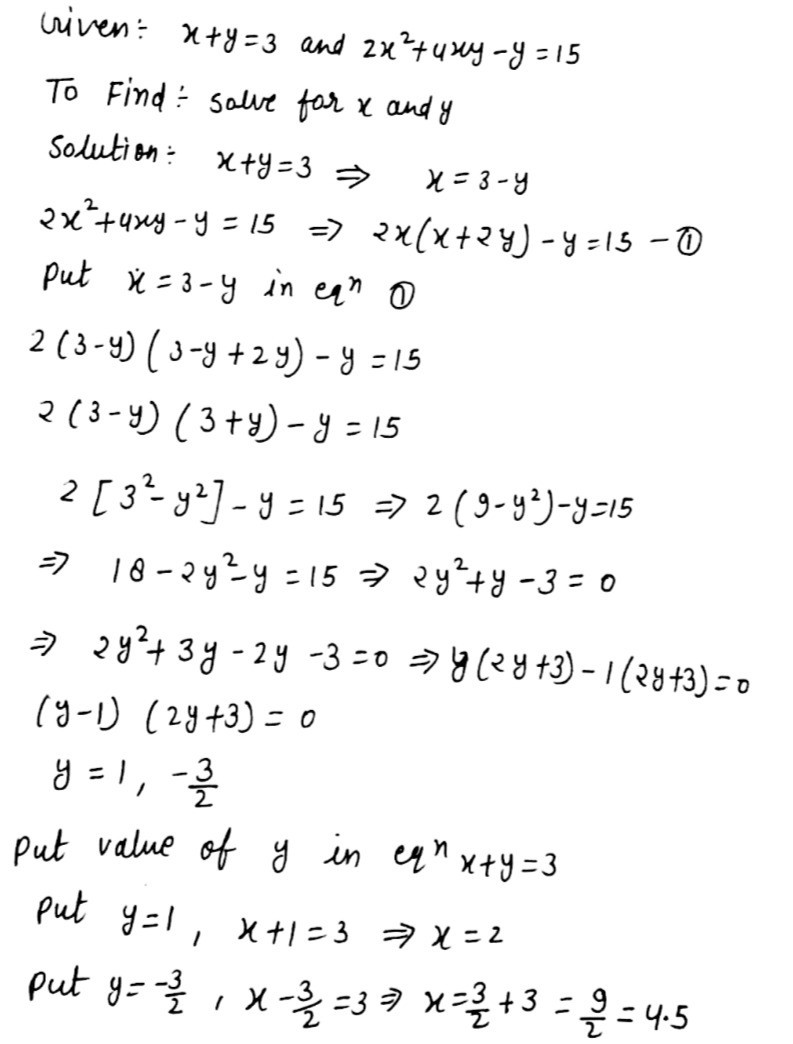 Given:- x+y=3 and 2x²+4xy-y=15
To Find:- solve for x and y
Solution:- x+y=3 ⇒ x=3-y
2x²+4xy-y=15 ⇒ 2x(x+2y)-y=15 -①
Put x=3-y in eqⁿ ①
2(3-y)(3-y+2y)-y=15
2(3-y)(3+y)-y=15
2[3²-y²]-y=15 ⇒ 2(9-y²)-y=15
⇒ 18-2y²-y=15 ⇒ 2y²+y-3=0
⇒ 2y²+3y-2y-3=0 ⇒ y(2y+3)-1(2y+3)=0
(y-1) (2y+3)=0
y=1, -3/2
Put value of y in eqⁿ x+y=3
Put y=1, x+1=3 ⇒ x=2
Put y=-3/2, x-3/2=3 ⇒ x=3/2+3=9/2=4.5